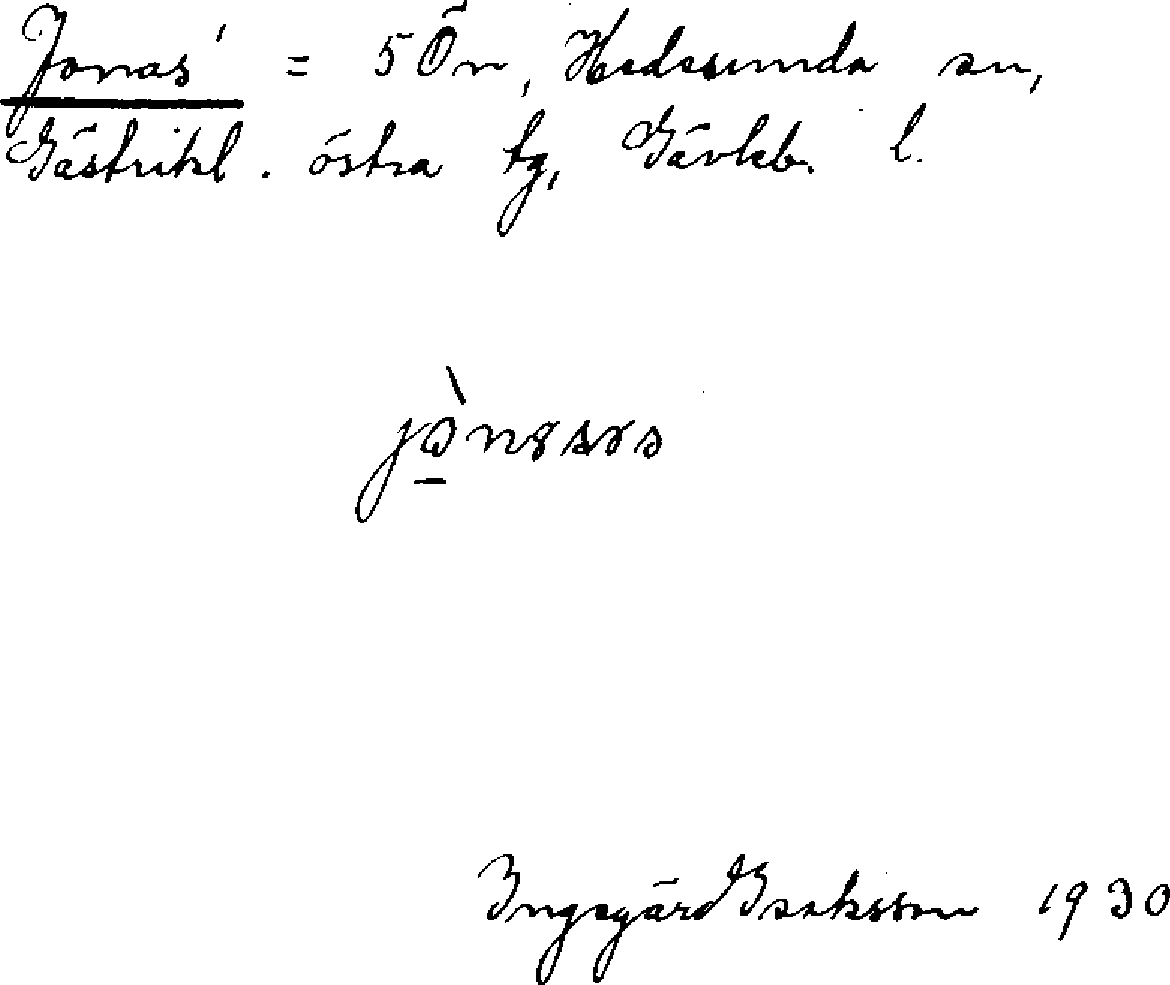 Jonas' = 5 Ön, Hedesunda sn,
Gästrikl. östra tg, Gävleb. l.
Ingegärd Isaksson 1930